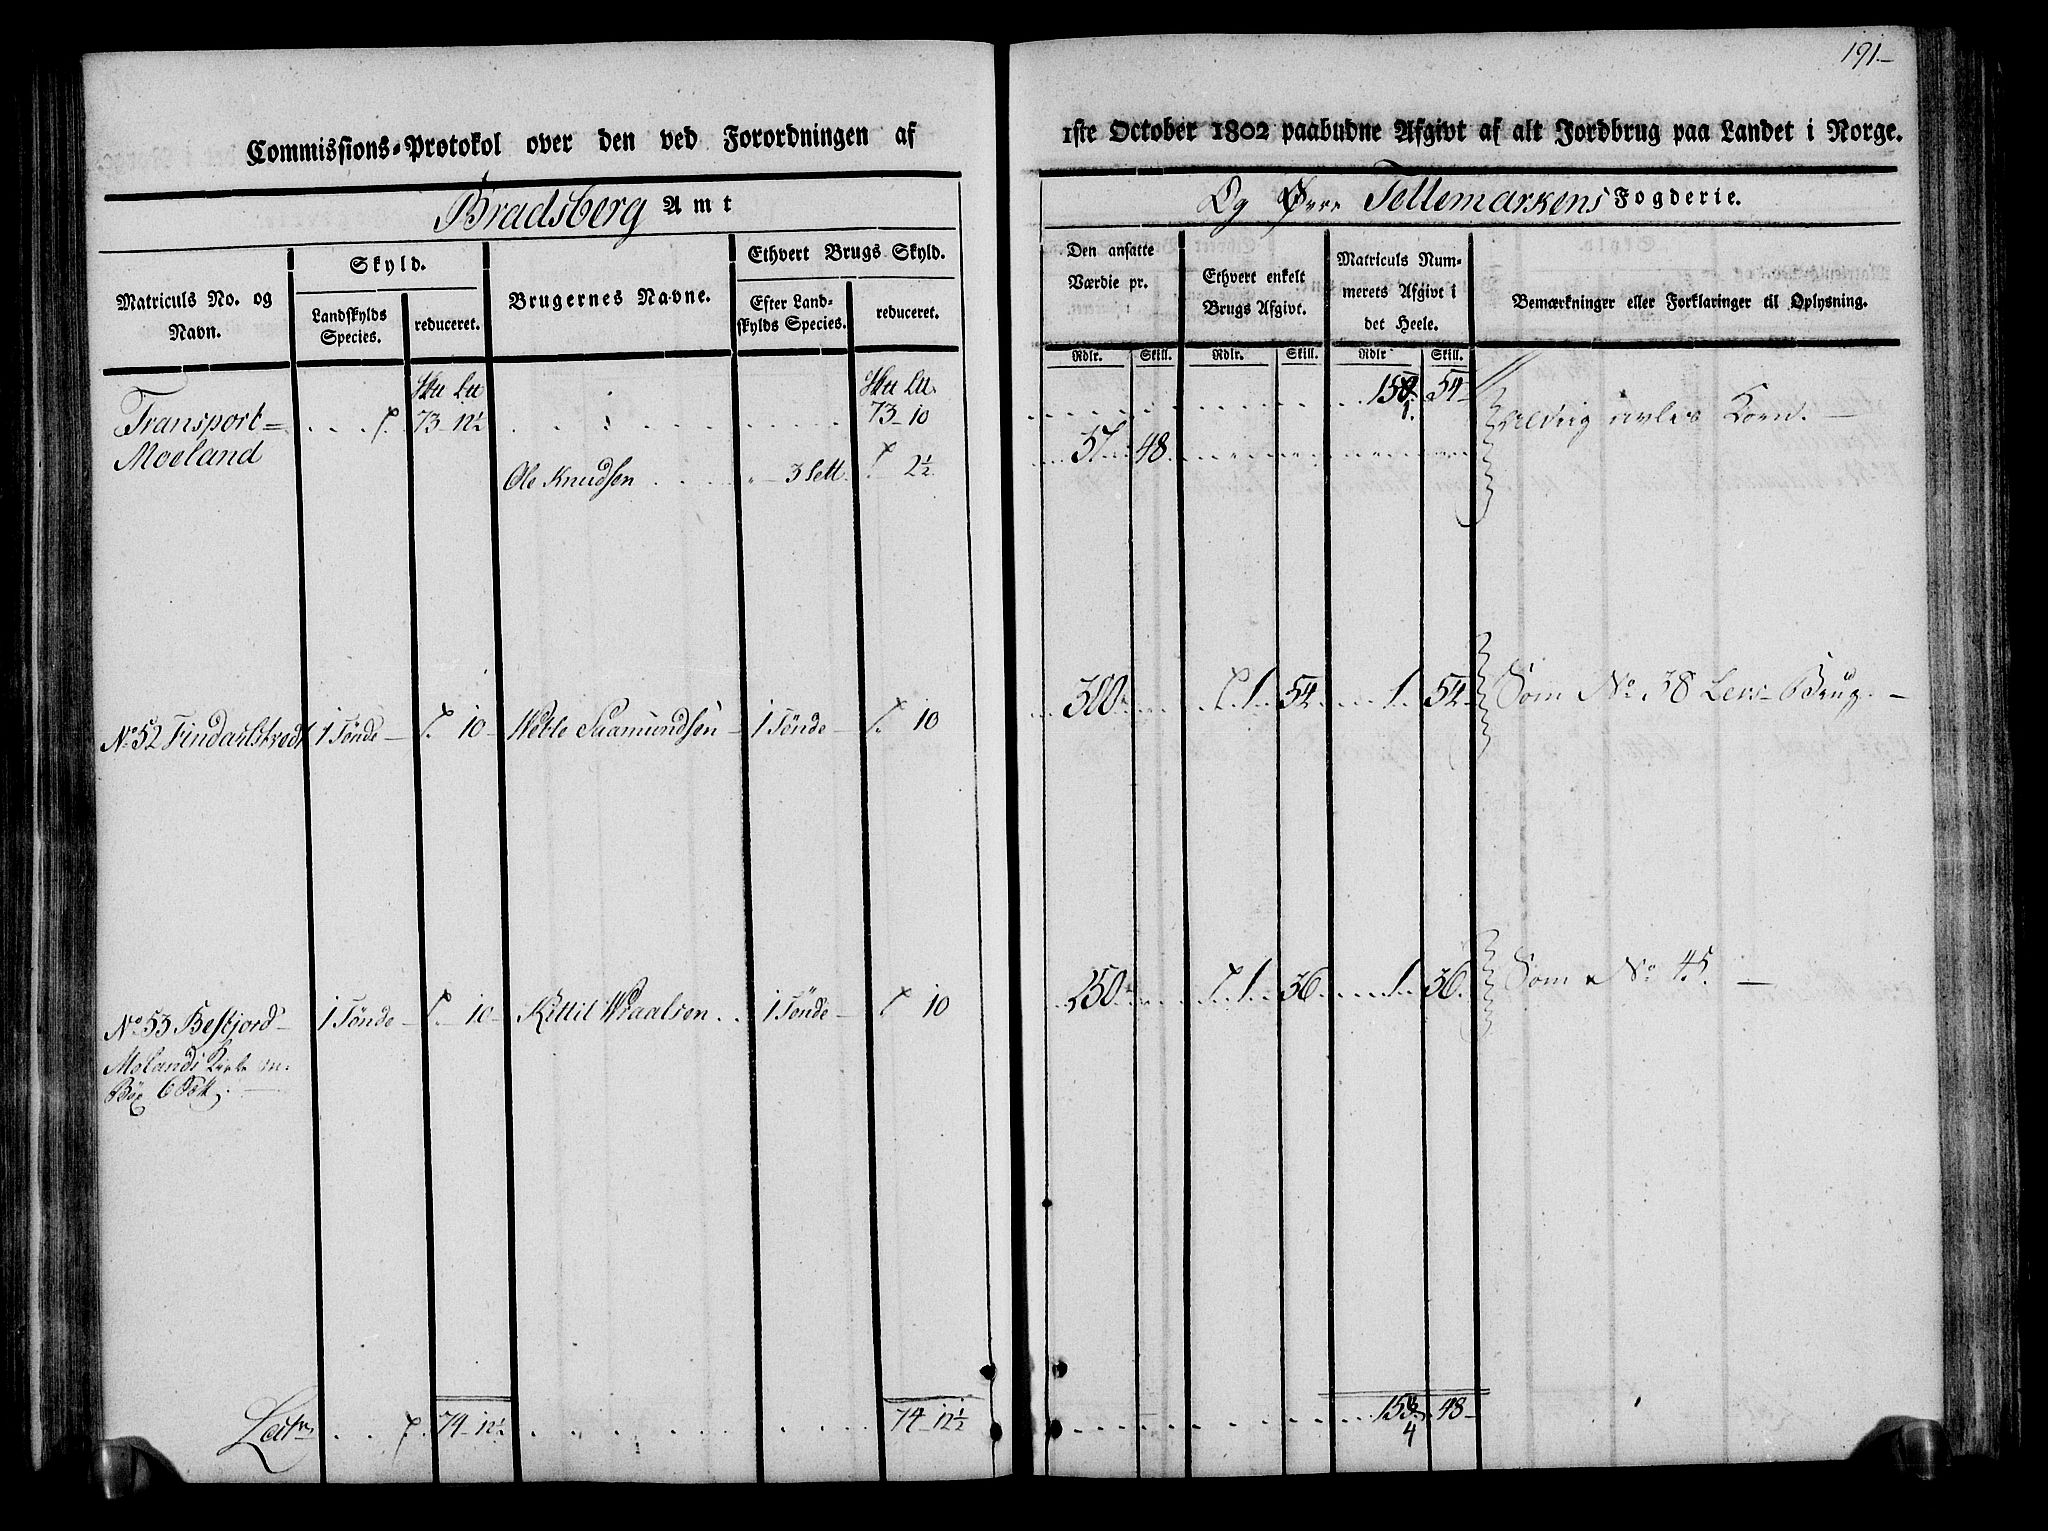 191.—
Commissions-Protokol over den ved Forordningen af 1ste October 1802 paabudne Afgivt af alt Jordbrug paa Landet i Norge.
Bradsberg Amt Og Øvre Tellemarkens Fogderie.
Matriculs No. og Navn. Skyld. Brugernes Navne. Ethvert Brugs Skyld. Den ansatte Værdie pr. Ethvert enkelt Brugs Afgivt. Matriculs Nummerets Afgivt i det Heele. Bemærkninger eller Forklaringer til Oplysning.
Landskylds Species. reduceret. Efter Landskylds Species. reduceret.
Rdlr. Skill. Rdlr. Skill. Rdlr Skill.
Transport= 73 12½ 73 10 54 aldrig avles Korn. —
Moeland Ole Knudsen 3 Sett. 2½ 57 48
No 52 1 Tönde 10 Saamundsen 1 Tönde 10 300 1 54 1 54 Som No 38 Brug. —
No 53 Bestjord 1 Tönde 10 Kittil Wraalsen 1 Tönde 10 250 1 36 1 36 Som No 45. —
Molands Kirke
6
Latus 74 12½ 74 12½ 48